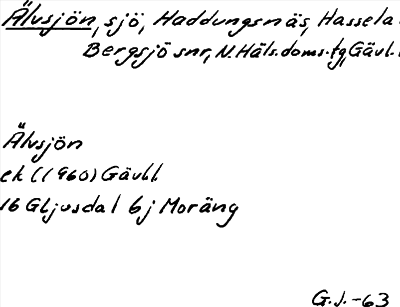 Älvsjön, sjö, Haddungsnäs, Hassela
Bergsjö snr, N. Häls. doms. tg, Gävl.
Älvsjön
ek (1960) Gävll
16 G Ljusdal 6j Moräng
G.J. -63